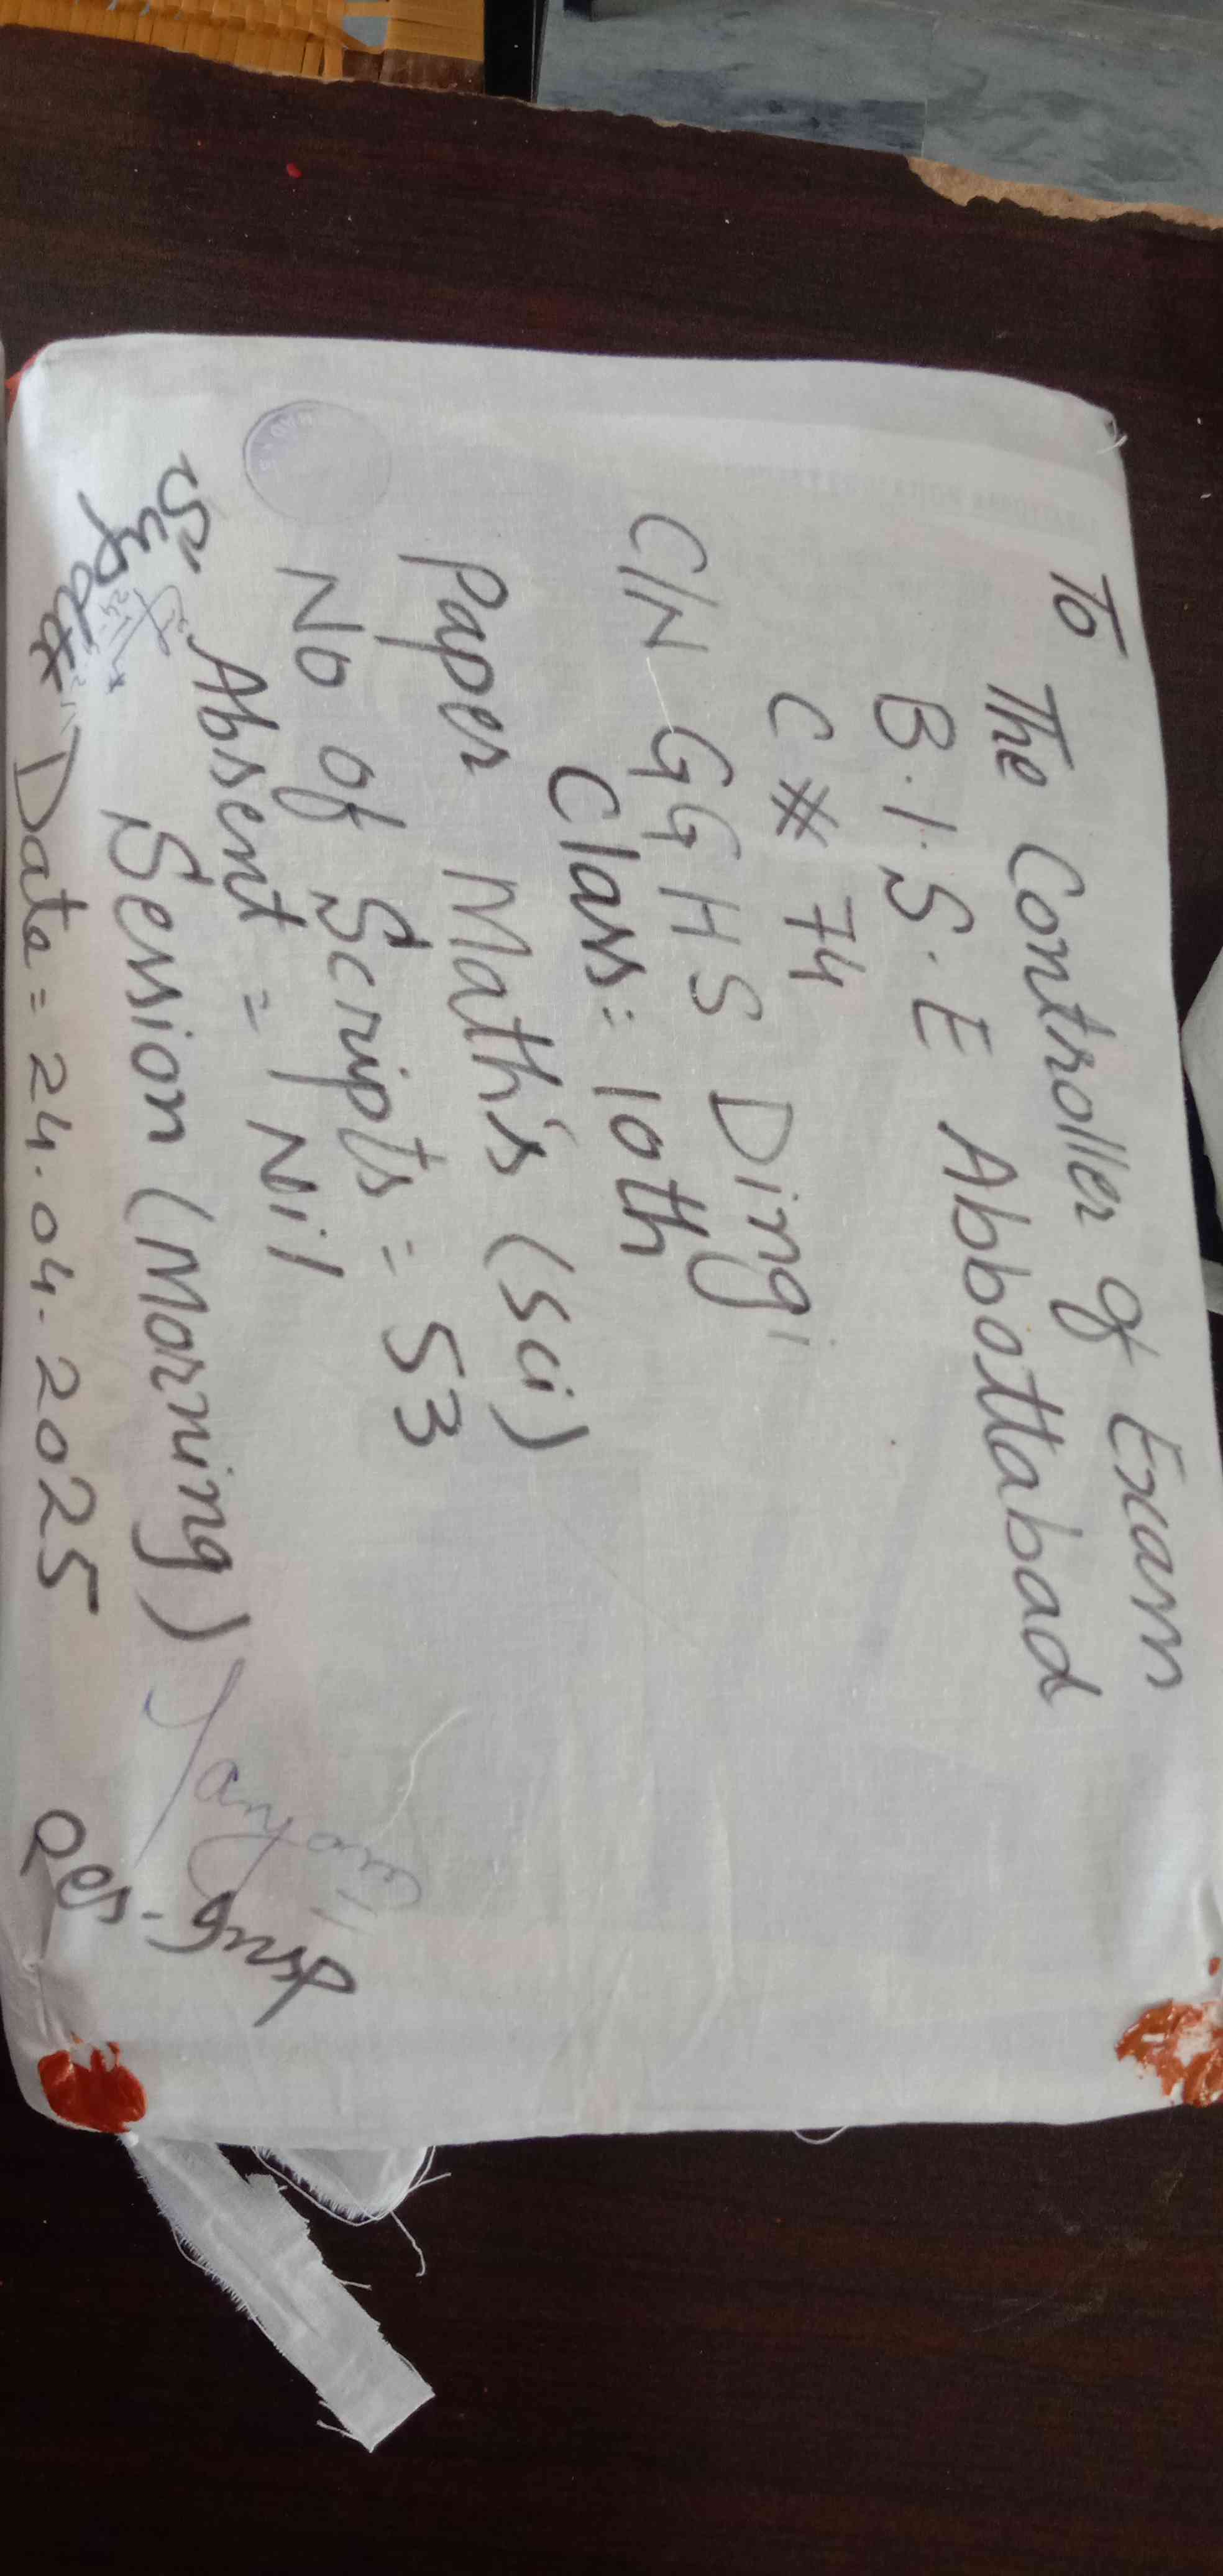 To
The Controller of Exam
B.I.S.E Abbottabad
C # 74
C/N GGHS Dingi
Class: 10th
Paper Math's (sci)
No of Scripts = 53
Absent = Nil
Session (Morning)
Supdtt
Date = 24.04.2025
Res-